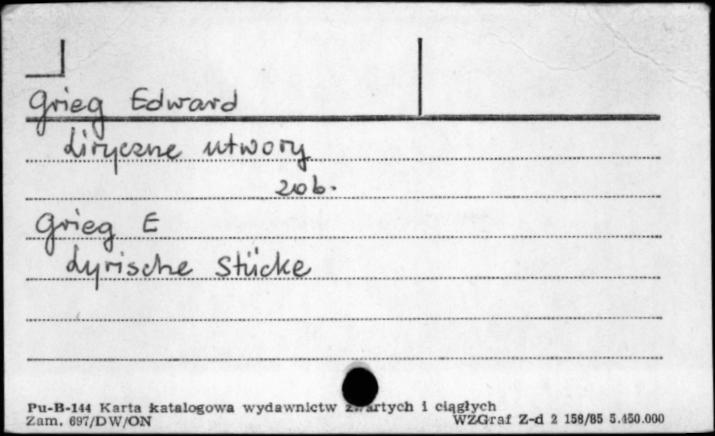 Grieg Edward
Liryczne utwory
zob.
Grieg E
Lyrische Stücke
Pu-B-144 Karta katalogowa wydawnictw zwartych i ciągłych
Zam. 697/DW/ON WZGraf Z-d 2 158/85 5.450.000